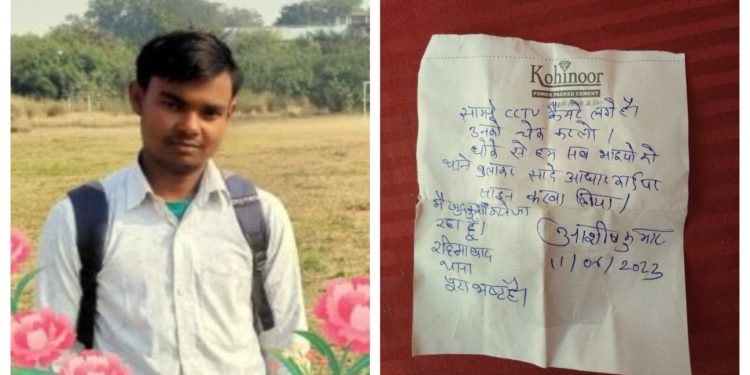 Kohinoor
POWER PACKED CEMENT
सामने CCTV कैमरे लगे हैं।
उनको चेक करलो।
धोके से हम सब भाइयो को
थाने बुलाकर सादे आधार कार्ड पर
साइन करवा लिया।
मैं खुदकुशी करने जा
रहा हूँ।
रहिमाबाद
थाना
पूरा भ्रष्ट है।
आशीष कुमार
11/06/2023